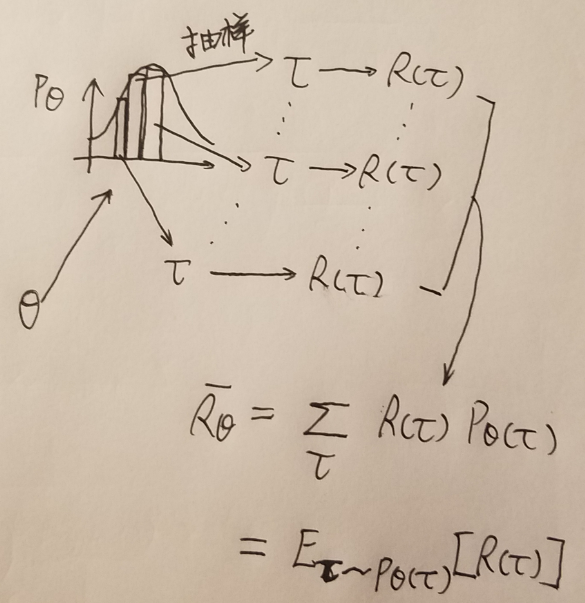 抽样
Pθ
τ → R(τ)
τ → R(τ)
τ → R(τ)
θ
R̄θ = Σ_τ R(τ) Pθ(τ)
= E_{τ∼Pθ(τ)}[R(τ)]